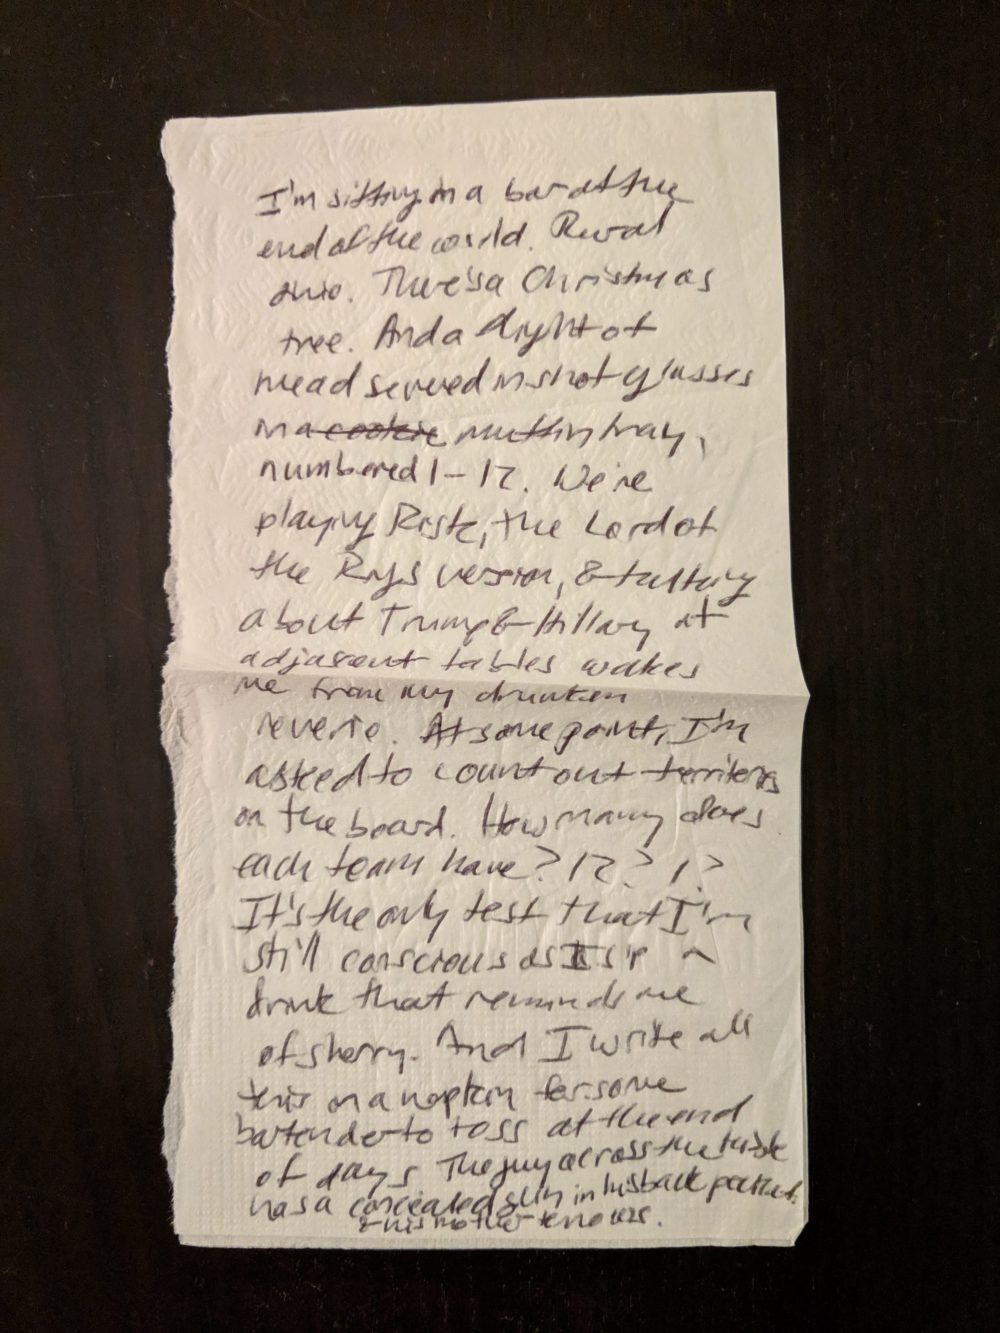 I'm sitting in a bar at the
end of the world. Rural
Ohio. There's a Christmas
tree. And a flight of
mead served in shot glasses
in a cookie muffin tray,
numbered 1-12. We're
playing Risk, the Lord of
the Rings version, & talking
about Trump & Hillary at
adjacent tables wakes
me from my drunken
reverie. At some point, I'm
asked to count out territories
on the board. How many does
each team have? 12? 1?
It's the only test that I'm
still conscious as I sip a
drink that reminds me
of sherry. And I write all
this on a napkin for some
bartender to toss at the end
of days The guy across the table
has a concealed gun in his back pocket
& his mother knows.